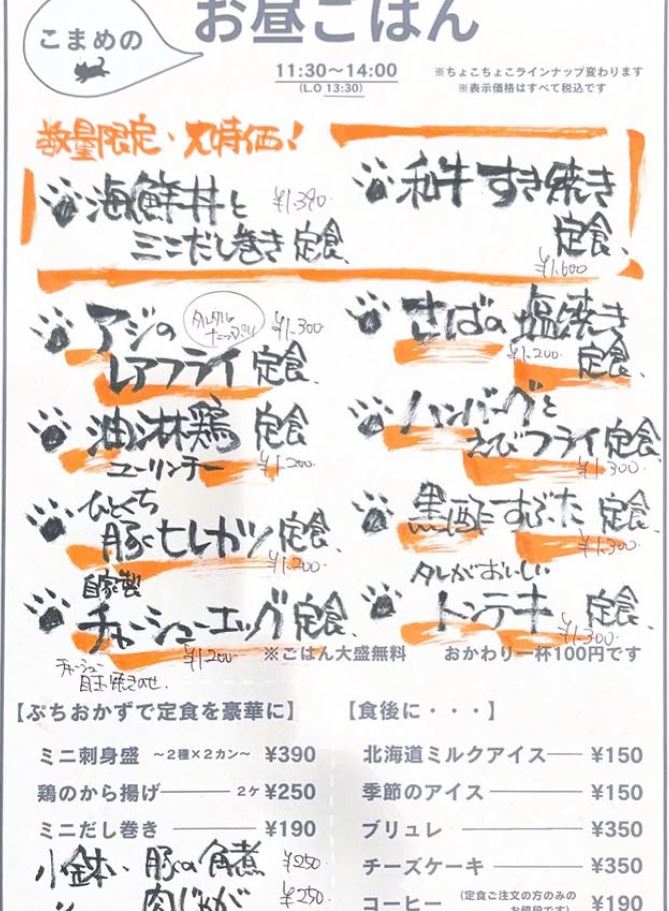 こまめの
お昼ごはん
11:30〜14:00
(L.O 13:30)
※ちょこちょこラインナップ変わります
※表示価格はすべて税込です
数量限定・大特価!
海鮮丼と
ミニだし巻き定食 ¥1,390
和牛すき焼き
定食
¥1,600
アジの ¥1,300
レアフライ定食
さばの塩焼き
¥1,200 定食
油淋鶏 定食
ユーリンチー ¥1,200
ハンバーグと
えびフライ定食
¥1,300
ひとくち
豚ヒレカツ定食
¥1,200
黒酢すぶた 定食
¥1,300
自家製
チャーシューエッグ定食
¥1,200
チャーシュー
目玉焼きのせ
タレがおいしい
トンテキ 定食
¥1,300
※ごはん大盛無料 おかわり一杯100円です
【ぷちおかずで定食を豪華に】
ミニ刺身盛 〜2種×2カン〜 ¥390
鶏のから揚げ 2ケ ¥250
ミニだし巻き ¥190
小鉢、豚の角煮 ¥250
肉じゃが ¥250
【食後に・・・】
北海道ミルクアイス ¥150
季節のアイス ¥150
ブリュレ ¥350
チーズケーキ ¥350
コーヒー (定食ご注文の方のみの ¥190
お値段です)